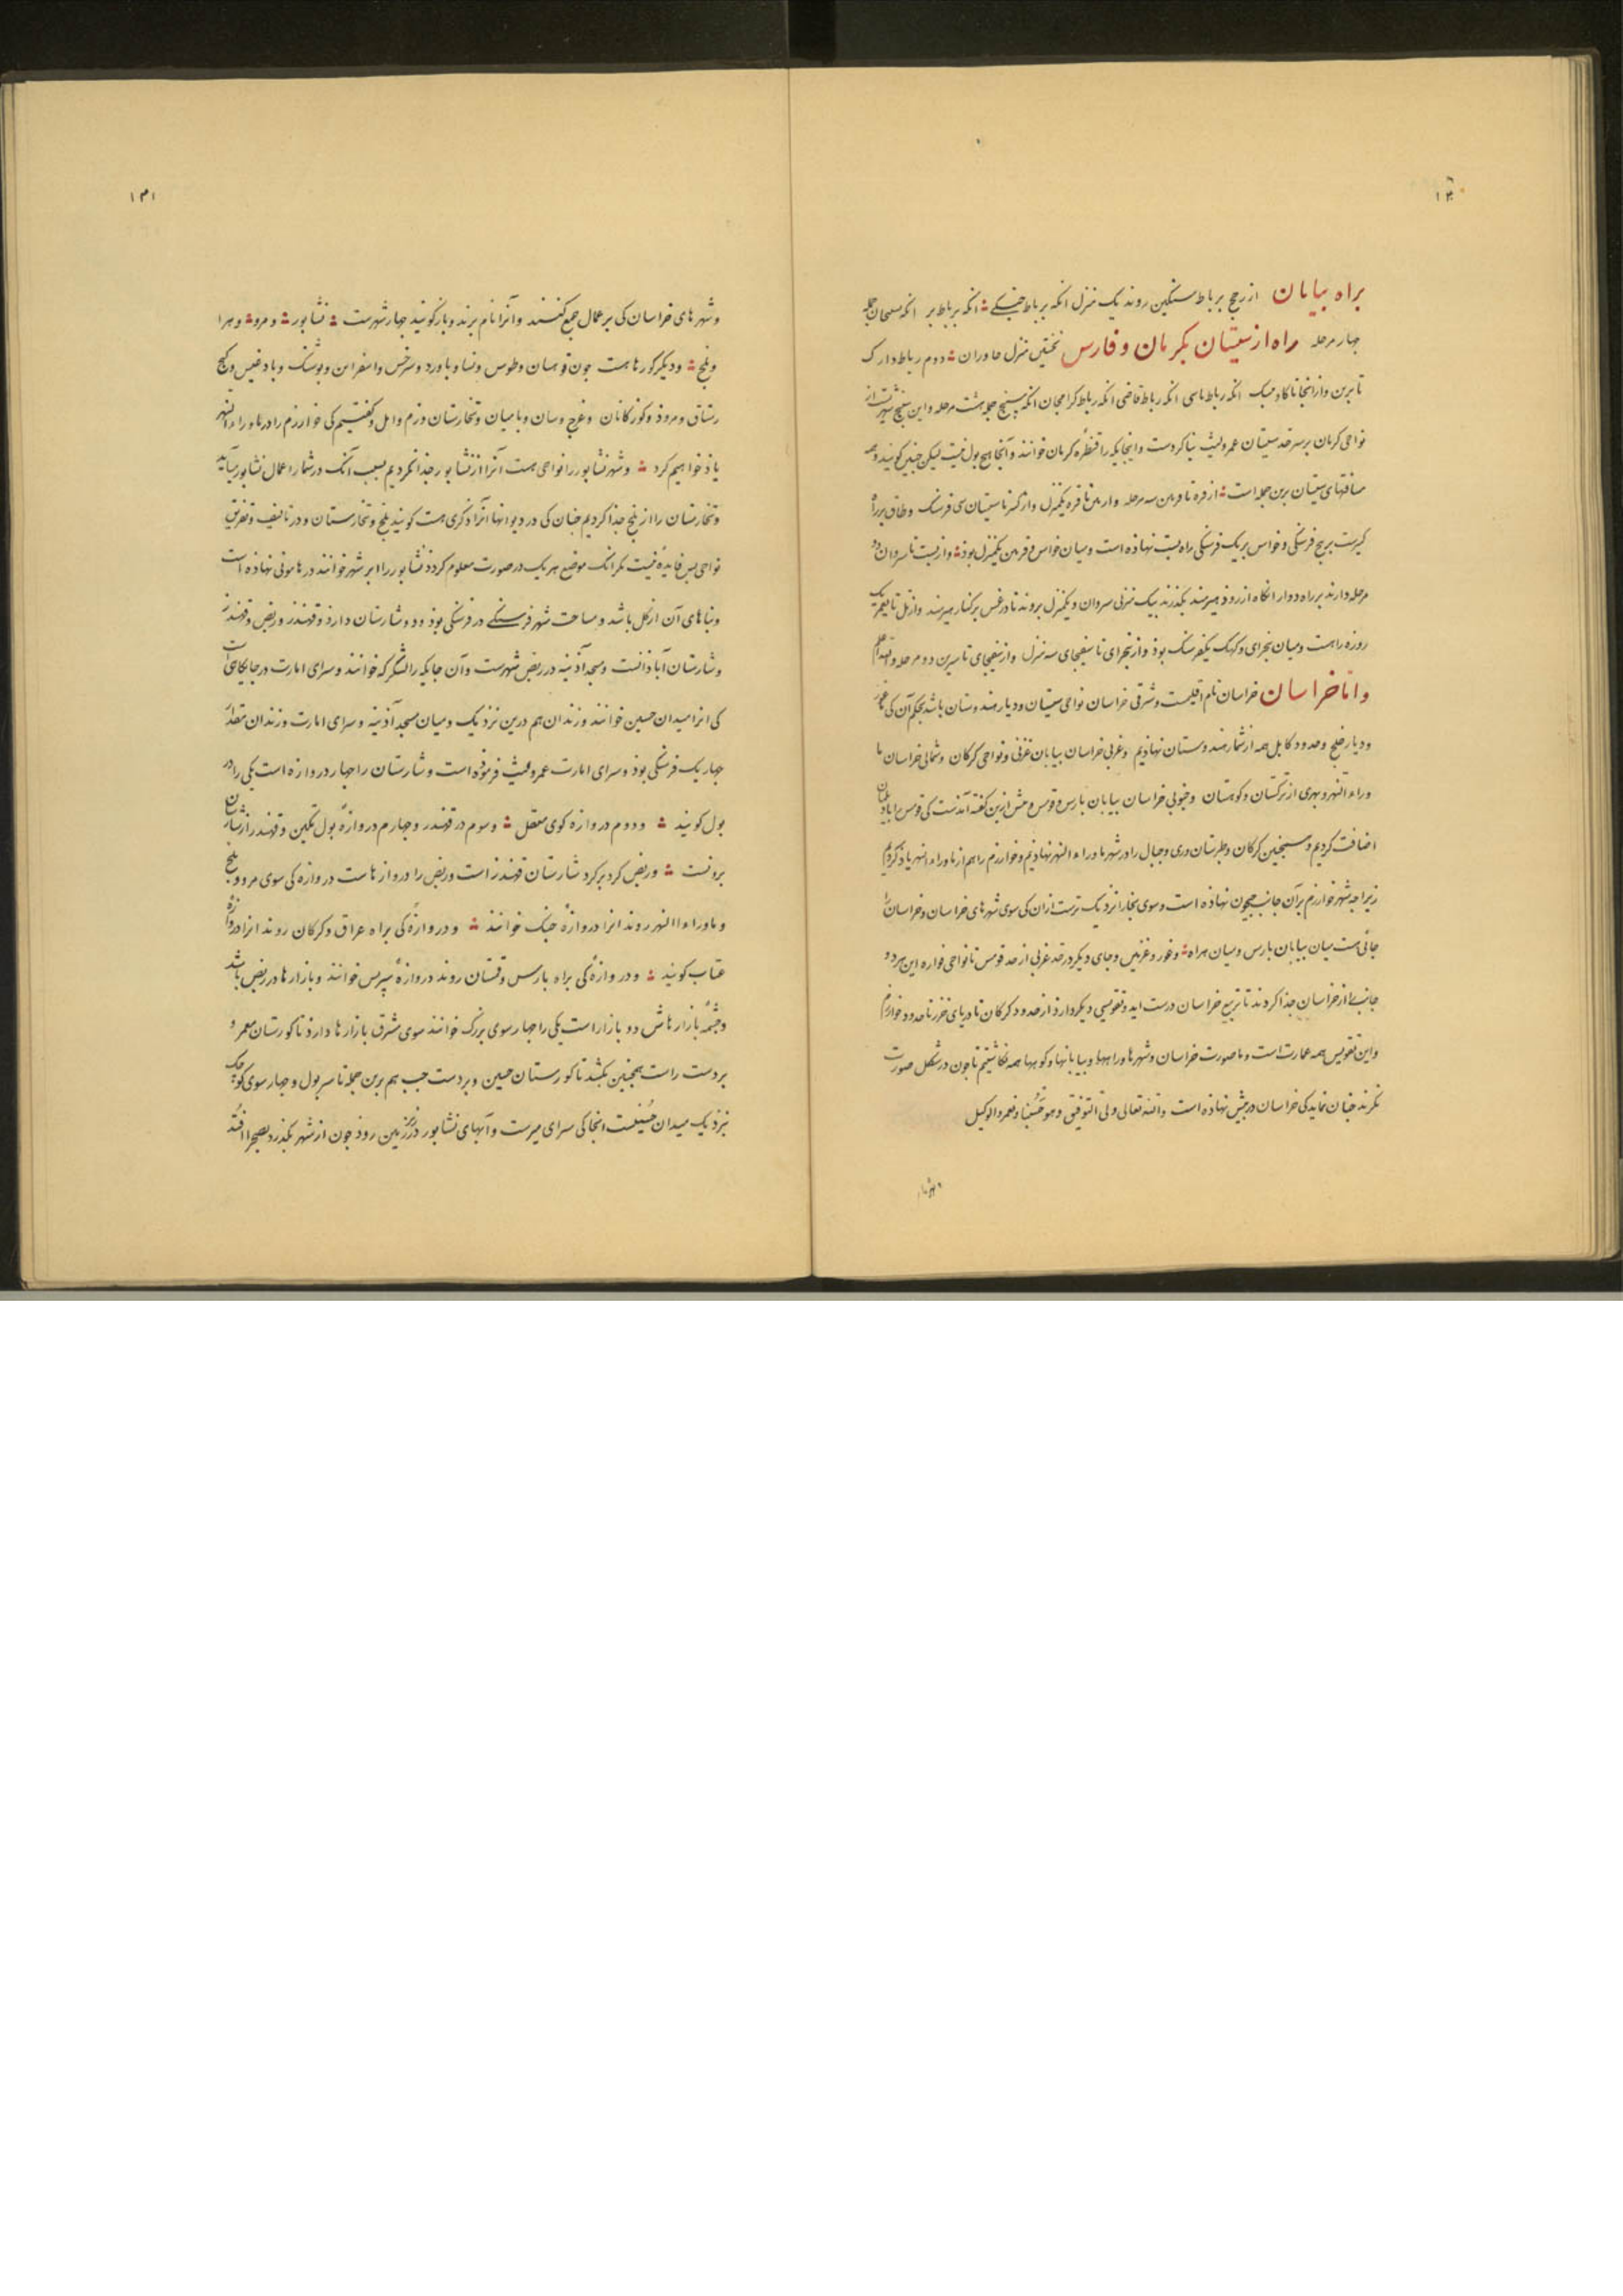 ۱۳۰
براه بیابان از رخج برباط سنگین روند یک منزل انکه برباط انکه برباط بر انکه جمله
چهار مرحله راه از سیستان بکرمان و فارس نخستین منزل خاوران دوم رباط دارک
تا برین و از انجا تا کاونیک انکه رباط ناسی انکه رباط قاضی انکه رباط کرامخان انکه بسنیج جمله هشت مرحله و این سنیج شهریست از
نواحی کرمان برسرحد سیستان عمرولیث بنا کردست و اینجایکه را قنطرهٔ کرمان خوانند و آنجا هیچ بول نیست لیکن جنین کویند و همه
مسافتهای سیستان برین جمله است از فره تا سه مرحله و از تا قره یکمنزل و از کسر تا سیستان سی فرسنک و طاق برراه
کیرست بربنج فرسنکی و خواس بریک فرسنکی راه بست نهاذه است و میان خواس و قرنین یکمنزل بوذ و از بست تا سروان دو
مرحله دارند برراه دوار انکاه از روذ هیرمند بکذرند بیک منزلی سروان و یکمنزل بروند تا درغس برکنار هیرمند و از تل تا یک
روزه راهست و میان بنجوای و کهک یکفرسنک بوذ و از بنجوای تا سفنجای سه منزل و از سفنجای تا سیرین دو مرحله والله اعلم
و اما خراسان خراسان نام اقلیمست و شرقی خراسان نواحی سیستان و دیار هندوستان باشد بحکم آن کی ما غور
و دیار خلج و حدود کابل همه از شمار هندوستان نهاذیم و غربی خراسان بیابان غزنی و نواحی کرکان و شمالی خراسان ما
وراء النهر و بهری از ترکستان و کوهستان و جنوبی خراسان بیابان بارس و قومس و بیش ازین کفته آمذست کی قومس را با دیلمان
اضافت کردیم و همجنین کرکان و طبرستان و ری و جبال را در شهر ماوراء النهر نهاذیم و خوارزم را هم از ماوراء النهر یاذ کردیم
زیرا جه شهر خوارزم بر آن جانب جیحون نهاذه است و سوی بخارا نزدیک ترست ازان کی سوی شهرهای خراسان و خراسان را
جائی هست میان بیابان بارس و میان هراه و غور و غزنین و جای دیکر در حد غربی از حد قومس تا نواحی فراوه این هر دو
جانب را از خراسان جذا کردند تا تربیع خراسان درست اید و تقویسی دیکر دارذ از حدود کرکان تا دریای خزر تا حدود خوارزم
و این تقویس همه عمارت است و ما صورت خراسان و شهرها و راهها و بیابانها و کوهها همه نکاشتیم تا جون در شکل صورت
نکرند جنان نماید کی خراسان در بیش نهاذه است والله تعالی ولی التوفیق وهو حسبنا و نعم الوکیل
۱۳۱
و شهرهای خراسان کی برعمال جمع کنند و آنرا نام برند و بازکویند جهار شهرست نشابور و مرو و هرا
و بلخ و دیکر کورها هست جون قوهسان و طوس و نسا و باورد و سرخس و اسفراین و بوشنک و باذغیس و کنج
رستاق و مروذ و کوزکانان و غرج وسان و بامیان و تخارستان و زم و امل و کفتیم کی خوارزم را در ماوراء النهر
یاذ خواهیم کرد و شهر نشابور را نواحی هست آنرا از نشابور جذا نکردیم بسبب آنک در شمار اعمال نشابور بیاید
و تخارستان را از بلخ جذا کردیم جنان کی در دیوانها آنرا ذکری هست کویند بلخ و تخارستان و در تالیف و تفریق
نواحی بس فایدهٔ نیست مکر انک موضع هر یک در صورت معلوم کردذ نشابور را ابرشهر خوانند در هامونی نهاذه است
و بناهای آن از کل باشد و مساحت شهر فرسنکی در فرسنکی بوذ و دو شارستان دارذ و قهندز و ربض و قهندز
و شارستان آباذانست و مسجد آذینه در ربض شهرست و آن جایکه را لشکرکه خوانند و سرای امارت در جایکاهی است
کی انرا میدان حسین خوانند و زندان هم درین نزدیک و میان مسجد آذینه و سرای امارت و زندان مقدار
جهاریک فرسنکی بوذ و سرای امارت عمرولیث فرموذه است و شارستان را جهار دروازه است یکی را در
بول کویند و دوم دروازه کوی معقل و سوم در قهندز و جهارم دروازهٔ بول تکین و قهندز از شارستان
بیرونست و ربض کرد برکرد شارستان و قهندز است و ربض را دروازهاست دروازه کی سوی مرو و بلخ
و ماوراء النهر روند انرا دروازهٔ جنک خوانند و دروازهٔ کی براه عراق و کرکان روند انرا دروازه
عتاب کویند و دروازهٔ کی براه بارس و قهستان روند دروازهٔ سیرس خوانند و بازارها در ربض باشد
و جشمهٔ بازارهاش دو بازار است یکی را جهارسوی بزرک خوانند سوی مشرق بازارها دارذ تا کورستان معمر و
بردست راست همجنین بکشد تا کورستان حسین و بردست جب هم برین جمله تا سر بول و جهارسوی کوجک
نزدیک میدان حسینست انجا کی سرای میرست و آبهای نشابور در زیر زمین روذ جون از شهر بکذرد بصحرا افتد